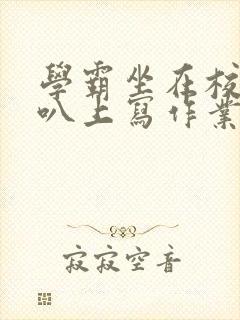 學霸坐在校
叭上寫作業
寂寂空音